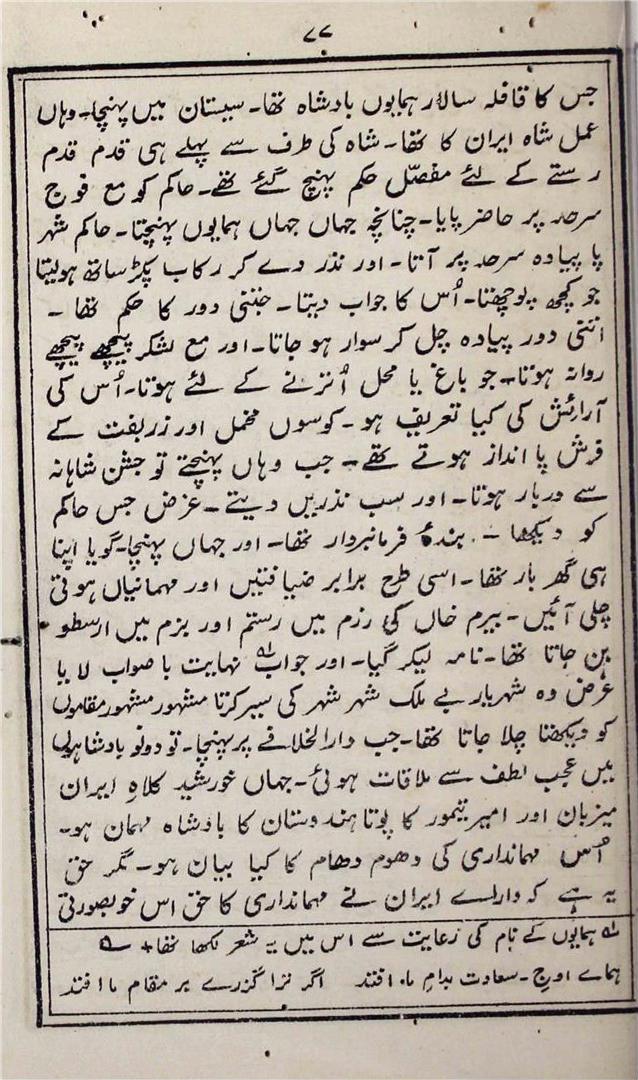 ۷۷
جس کا قافلہ سالار ہمایوں بادشاہ تھا۔ سیستان میں پہنچا۔ وہاں
عمل شاہ ایران کا تھا۔ شاہ کی طرف سے پہلے ہی قدم قدم
رستے کے لئے مفصّل حکم پہنچ گئے تھے۔ حاکم کو مع فوج
سرحد پر حاضر پایا۔ چنانچہ جہاں جہاں ہمایوں پہنچتا۔ حاکم شہر
پا پیادہ سرحد پر آتا۔ اور نذر دے کر رکاب پکڑ ساتھ ہولیتا
جو کچھ پوچھتا۔ اُس کا جواب دیتا۔ جتنی دور کا حکم تھا ۔
اتنی دور پیادہ چل کر سوار ہو جاتا۔ اور مع لشکر پیچھے پیچھے
روانہ ہوتا۔ جو باغ یا محل اُترنے کے لئے ہوتا۔ اُس کی
آرائش کی کیا تعریف ہو ۔ کوسوں مخمل اور زربفت کے
فرش پا انداز ہوتے تھے۔ جب وہاں پہنچتے تو جشن شاہانہ
سے دربار ہوتا۔ اور سب نذریں دیتے۔ غرض جس حاکم
کو دیکھا ۔ بندۂ فرمانبردار تھا۔ اور جہاں پہنچا۔ گویا اپنا
ہی گھر بار تھا۔ اسی طرح برابر ضیافتیں اور مہمانیاں ہوتی
چلی آئیں۔ بیرم خاں کہ رزم میں رستم اور بزم میں ارسطو
بن جاتا تھا۔ نامہ لیکر گیا۔ اور جواب ؎۱ نہایت با صواب لایا
غرض وہ شہریار بے ملک شہر شہر کی سیر کرتا مشہور مشہور مقاموں
کو دیکھتا چلا جاتا تھا۔ جب دارالخلافے پر پہنچا۔ تو دونو بادشاہوں
میں عجب لطف سے ملاقات ہوئی۔ جہاں خورشید کلاہِ ایران
میزبان اور امیر تیمور کا پوتا ہندوستان کا بادشاہ مہمان ہو۔
اُس مہمانداری کی دھوم دھام کا کیا بیان ہو۔ مگر حق
یہ ہے کہ دارائے ایران نے مہمانداری کا حق اس خوبصورتی
؎۱ ہمایوں کے نام کی رعایت سے اس میں یہ شعر لکھا تھا + ؎
ہمائے اوجِ ۔ سعادت بدامِ ما افتد اگر ترا گزرے بر مقام ما افتد